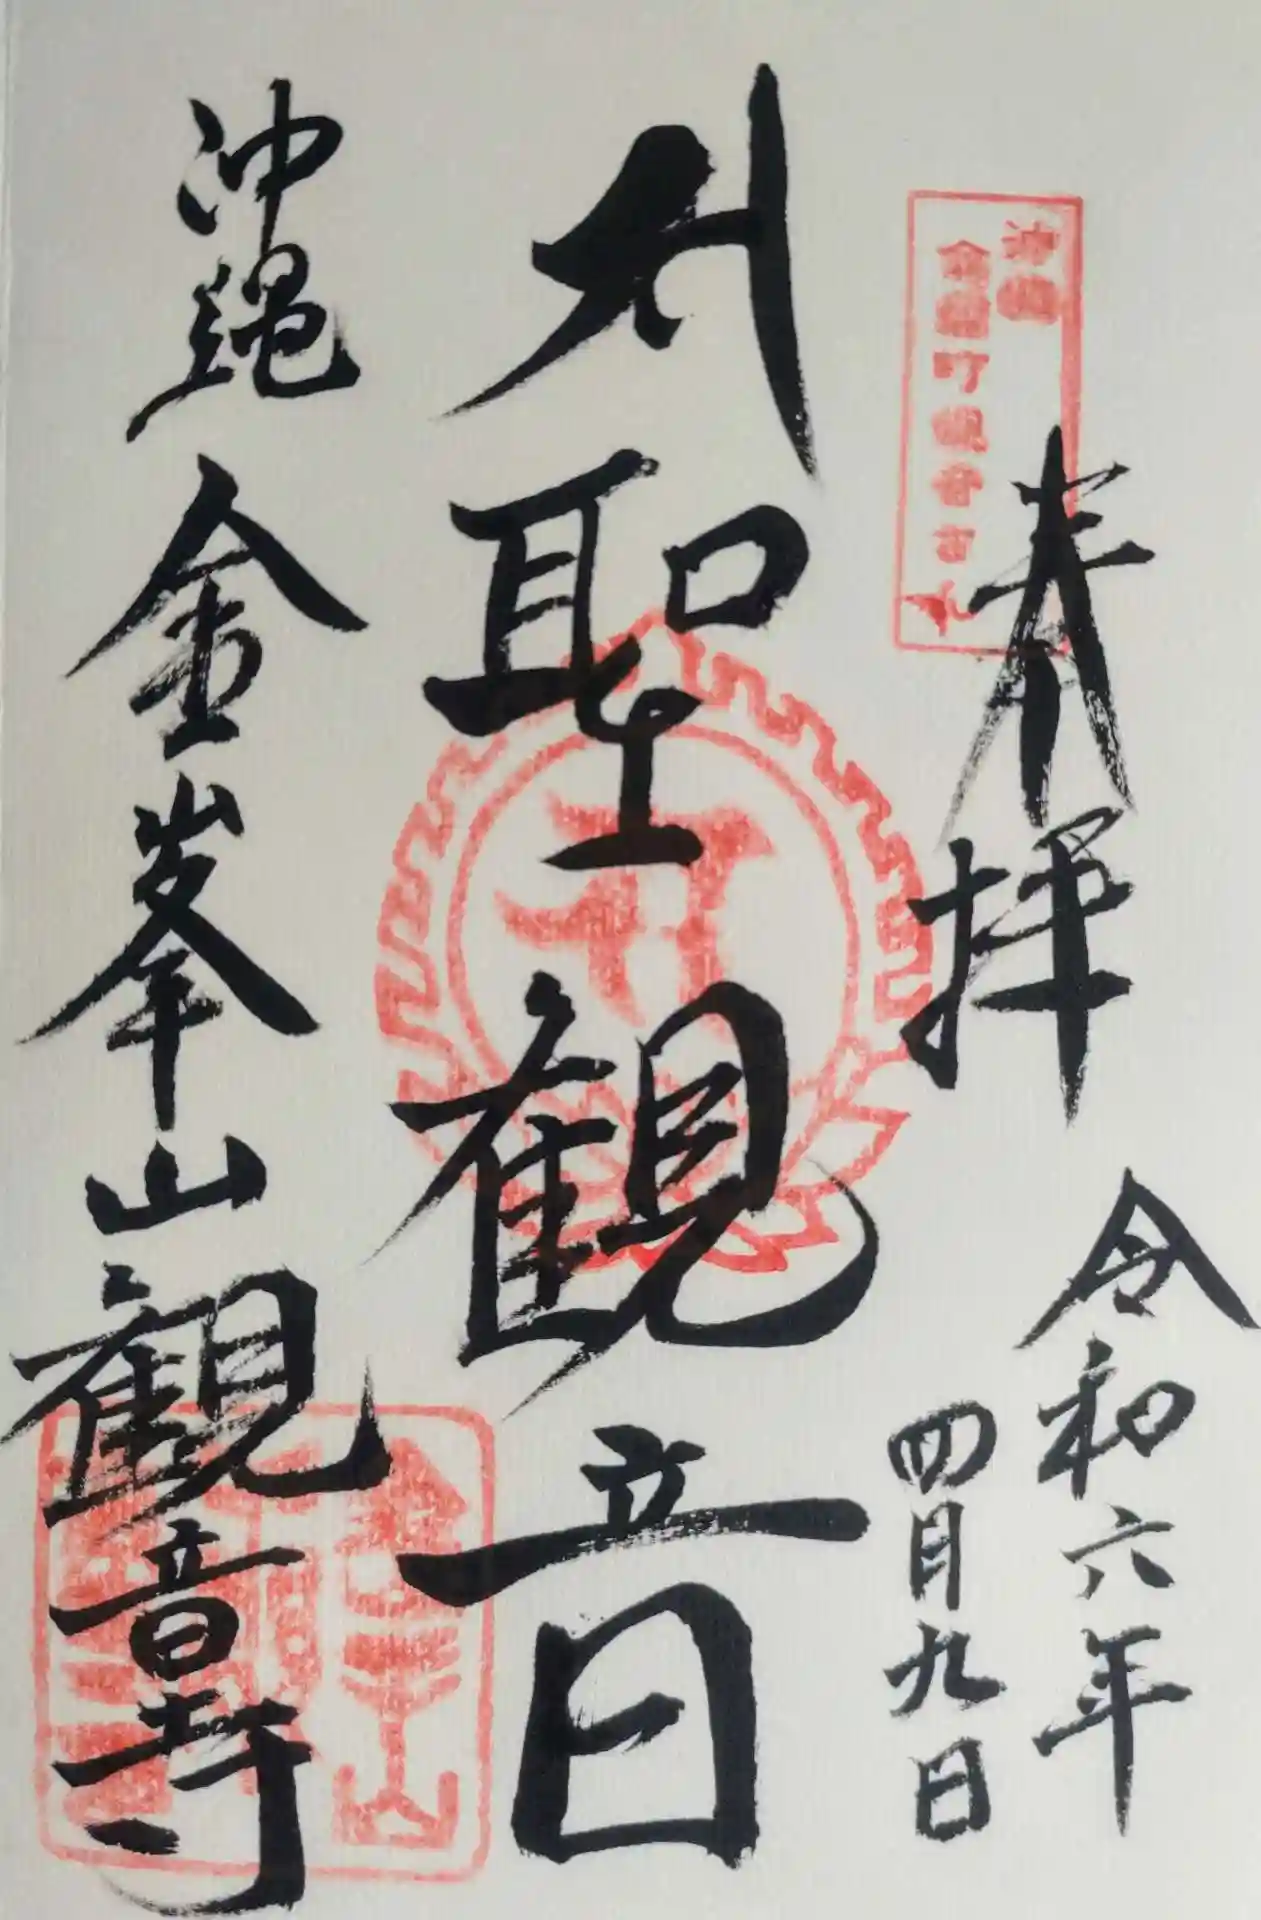 奉拝
令和六年
四月九日
サ
聖観音
沖縄
金峯山観音寺
沖縄
金武町観音さん